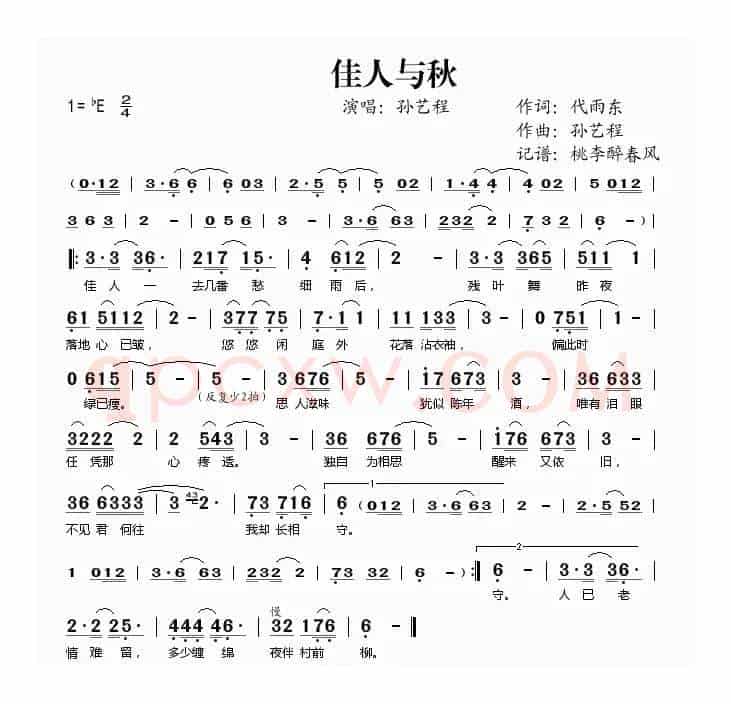 佳人与秋
1=♭E 2/4 演唱：孙艺程 作词：代雨东
作曲：孙艺程
记谱：桃李醉春风
(0·12 | 3·6 6 | 6 03 | 2·5 5 | 5 02 | 1·4 4 | 4 02 | 5 012 |
3 6 3 | 2 - | 0 5 6 | 3 - | 3·6 63 | 232 2 | 7 32 | 6 - ) |
‖: 3·3 36· | 217 15· | 4 612 | 2 - | 3·3 365 | 511 1 |
佳 人 一 去几番 愁 细 雨后， 残 叶 舞 昨夜
61 5112 | 2 - | 377 75 | 7·1 1 | 11 133 | 3 - | 0 751 |
落地 心 已皱， 悠 悠 闲 庭 外 花落 沾衣袖， 偏此时
0 615 | 5 - | 5 - | 3 676 | 5 - | 17 673 | 3 - | 36 633 |
绿已瘦。 (反复少2拍) 思 人滋味 犹似 陈年 酒， 唯有 泪 眼
3222 2 | 2 543 | 3 - | 36 676 | 5 - | 176 673 | 3 - |
任 凭那 心 疼 透。 独自 为相思 醒来 又依 旧，
36 6333 | 3 43 2· | 73 716 | 1 6 (012 | 3·6 63 | 2 - | 2·5 52 |
不见 君 何往 我却 长相 守。
1 012 | 3·6 63 | 232 2 | 73 32 | 6 - ) :‖ 2 6 - | 3·3 36· |
守。 人 已 老
慢
2·2 25· | 444 46· | 32 176 | 6 - ‖
情 难 留， 多少缠 绵 夜伴 村前 柳。
qpcxw.com